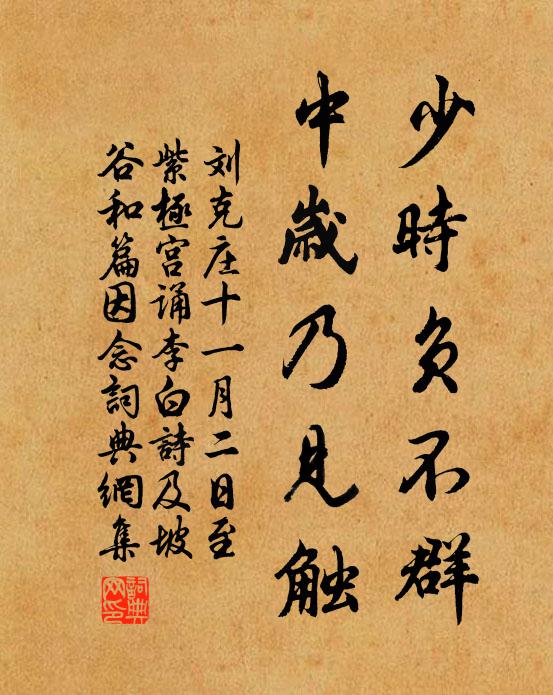 少時负不群
中歲乃見触
刘克庄十一月二日至
紫極宫诵李白詩及坡
谷和篇因念詞典網集
詞典
网印